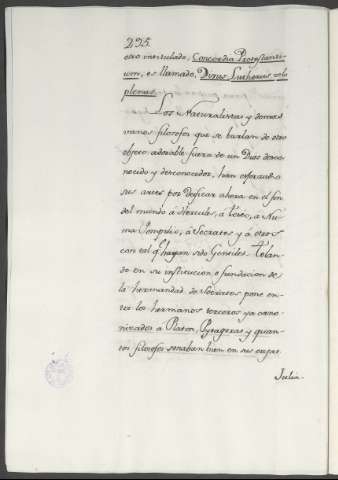 295.
otro intitulado, Concordia Protestanti-
um, es llamado, Divus Lutherus
plenas.
Los Naturalistas y demas
vanos filosofos que se burlan de otro
objeto adorable fuera de un Dios desco-
nocido y desconocedor, han
sus artes por deificar ahora en el fin
del mundo à Hercules, à Teseo, à Nu-
ma Pompilio, à Socrates y à otros
con tal q.e hayan sido Gentiles. Tolan-
do en su institucion o fundacion de
la hermandad de Socrates pone en-
tre los hermanos terceros ya cano-
nizados à Platon, Pytagoras y quan-
tos filosofos sonaban bien en sus orejas.
Julia-